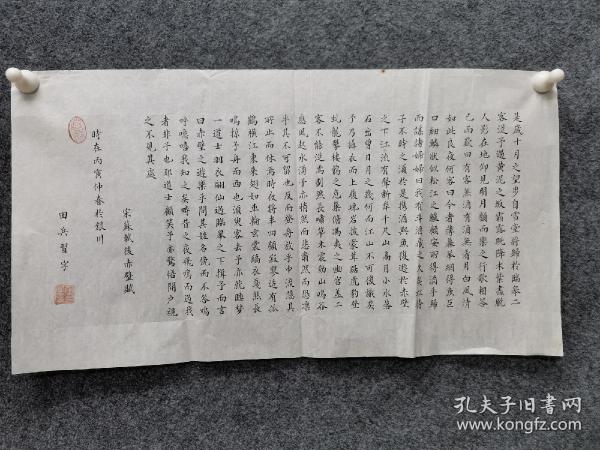 是歲十月之望步自雪堂將歸於臨皋二
客從予過黃泥之坂霜露既降木葉盡脫
人影在地仰見明月顧而樂之行歌相答
已而歎曰有客無酒有酒無肴月白風清
如此良夜何客曰今者薄暮舉網得魚巨
口細鱗狀似松江之鱸顧安所得酒乎歸
而謀諸婦婦曰我有斗酒藏之久矣以待
子不時之須於是攜酒與魚復遊於赤壁
之下江流有聲斷岸千尺山高月小水落
石出曾日月之幾何而江山不可復識矣
予乃攝衣而上履巉岩披蒙茸踞虎豹登
虬龍攀棲鶻之危巢俯馮夷之幽宮蓋二
客不能從焉劃然長嘯草木震動山鳴谷
應風起水湧予亦悄然而悲肅然而恐凜
乎其不可留也反而登舟放乎中流聽其
所止而休焉時夜將半四顧寂寥適有孤
鶴橫江東來翅如車輪玄裳縞衣戛然長
鳴掠予舟而西也須臾客去予亦就睡夢
一道士羽衣翩仙過臨皋之下揖予而言
曰赤壁之遊樂乎問其姓名俛而不答嗚
呼噫嘻我知之矣疇昔之夜飛鳴而過我
者非子也耶道士顧笑予亦驚悟開戶視
之不見其處
宋蘇軾後赤壁賦
時在丙寅仲春於銀川
田兵習字
孔夫子旧书网
www.kongfz.com